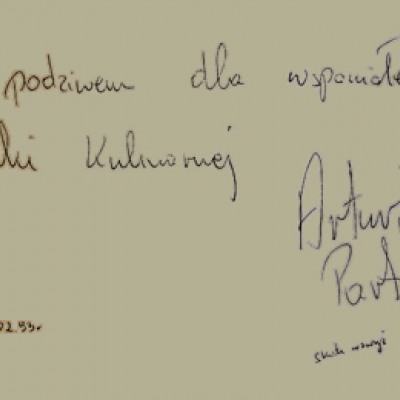 podziwem dla wspaniałe
uki Kulinarnej
Artur
Part
02.93r